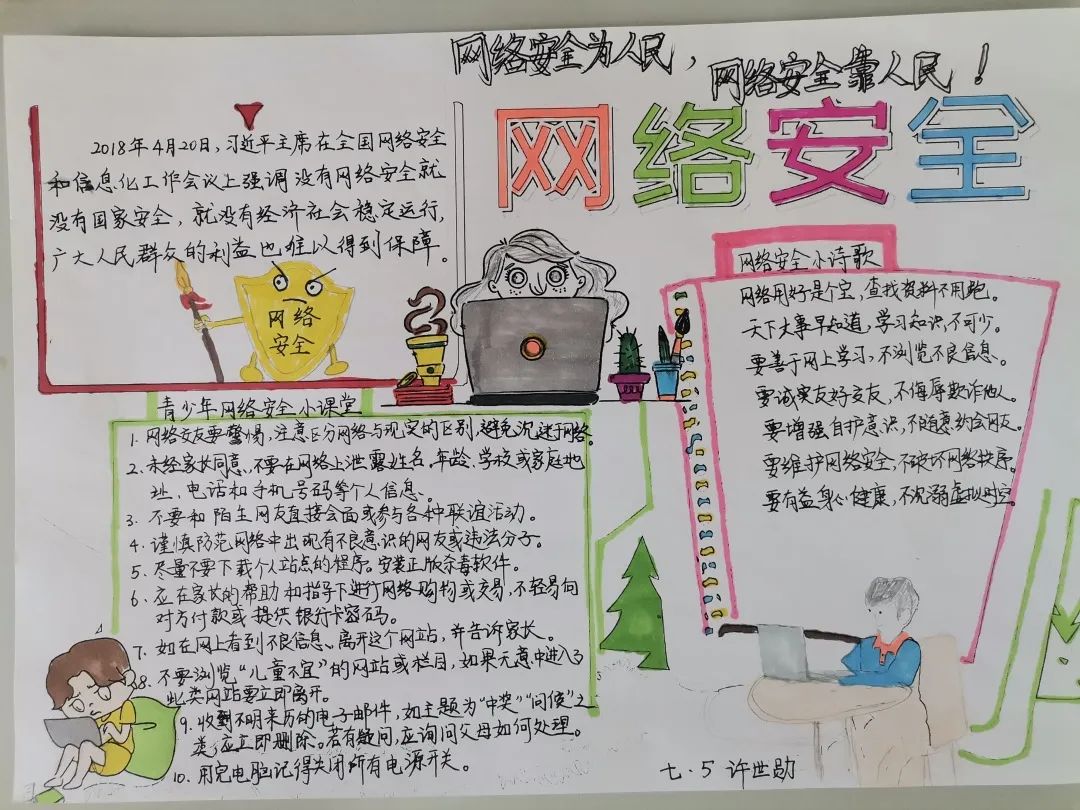 网络安全为人民，
网络安全靠人民！
网络安全
2018年4月20日，习近平主席在全国网络安全
和信息化工作会议上强调没有网络安全就
没有国家安全，就没有经济社会稳定运行，
广大人民群众的利益也难以得到保障。
网络
安全
网络安全小诗歌
网络用好是个宝，查找资料不用跑。
天下大事早知道，学习知识不可少。
要善于网上学习，不浏览不良信息。
要诚实友好交友，不侮辱欺诈他人。
要增强自护意识，不随意约会网友。
要维护网络安全，不破坏网络秩序。
要有益身心健康，不沉溺虚拟时空。
青少年网络安全小课堂
1. 网络交友要警惕，注意区分网络与现实的区别，避免沉迷于网络。
2. 未经家长同意，不要在网络上泄露姓名、年龄、学校或家庭地
址、电话和手机号码等个人信息。
3. 不要和陌生网友直接会面或参与各种联谊活动。
4. 谨慎防范网络中出现有不良意识的网友或违法分子。
5. 尽量不要下载个人站点的程序。安装正版杀毒软件。
6. 应在家长的帮助和指导下进行网络购物或交易，不轻易向
对方付款或提供银行卡密码。
7. 如在网上看到不良信息、离开这个网站，并告诉家长。
8. 不要浏览“儿童不宜”的网站或栏目，如果无意中进入了
此类网站要立即离开。
9. 收到不明来历的电子邮件，如主题为“中奖”“问候”之
类，应立即删除。若有疑问，应询问父母如何处理。
10. 用完电脑记得关闭所有电源开关。
七.5 许世勋